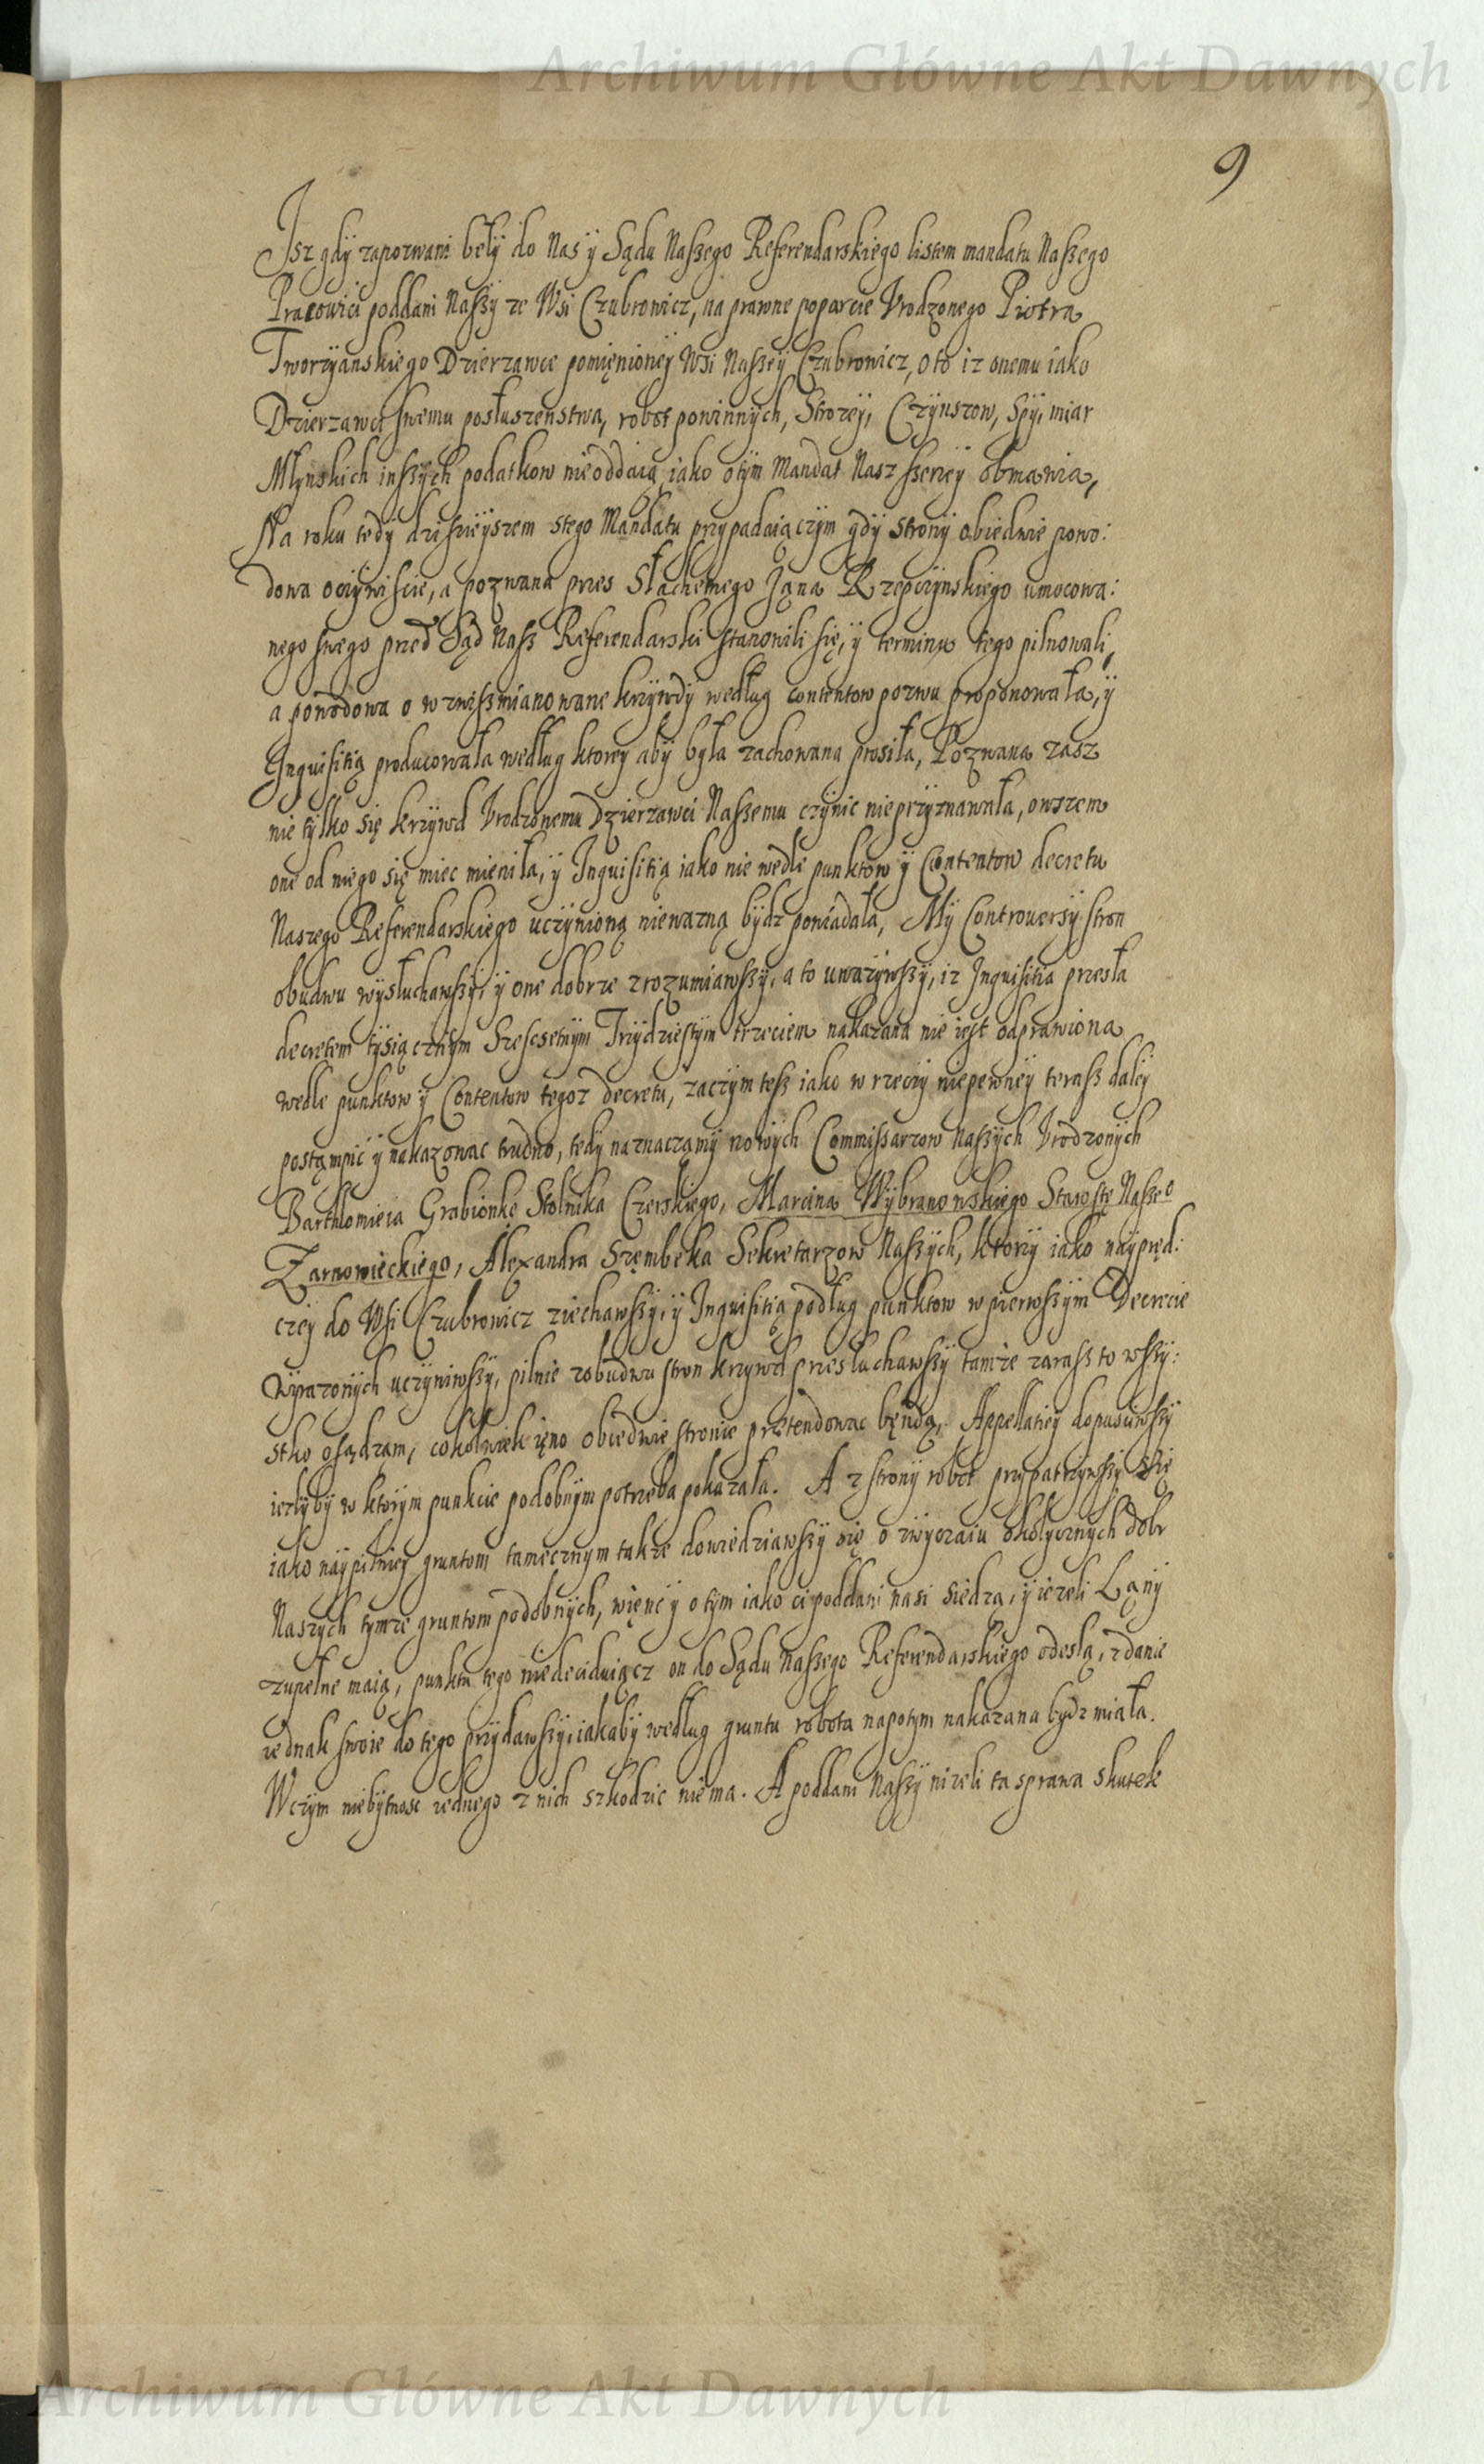 Archiwum Główne Akt Dawnych
9
Isz gdÿ zapozwani bełÿ do Nas ÿ Sądu Naszego Referendarskiego listem mandatu Naszego
Pracowici poddani Naszÿ ze Wsi Czubrowicz, na prawne poparcie Vrodzonego Piotra
Tworzÿanskiego Dzierzawce pomięnioneÿ Wsi Naszeÿ Czubrowicz, o to iz onemu iako
Dzierzawcÿ swemu posłuszenstwa, robot powinnÿch, Strozeÿ, Czÿnszow, Spÿ, miar
Młynskich inszÿch podatkow nie oddaią, iako o tÿm Mandat Nasz szerzeÿ obmawia,
Na roku tedÿ dzisieÿszem z tego Mandatu przypadaiączÿm gdÿ stronÿ obiedwie powo:
dowa oczÿwiscie, a pozwana przes Słachetnego Jąna Rzepczÿnskiego umocowa:
nego swego przed Sąd Nasz Referendarski stanowili się, ÿ terminu tego pilnowali,
a powodowa o wzwyszmianowane krzÿwdÿ według contentow pozwu proponowała, ÿ
Inquisitią producowała według ktoreÿ abÿ bÿła zachowana prosiła, Pozwana zasz
nie tÿlko się krzÿwd Vrodzonemu Dzierzawci Naszemu czÿnic nie przÿznawała, owszem
one od niego się miec mieniła, ÿ Inquisitią iako nie wedle punktow ÿ Contentow decretu
Naszego Referendarskiego uczÿnioną niewazną bÿdz powiadała, Mÿ Controversÿ stron
obudwu wÿsłuchawszÿ, ÿ one dobrze zrozumiawszÿ, a to uwazÿwszÿ, iz Inquisitia przesła
decretem tÿsiącznÿm Szescsetnÿm Trzÿdziestÿm trzeciem nakazana nie iest odprawiona
wedle punktow ÿ Contentow tegoz decretu, zaczÿm tesz iako w rzeczÿ niepewneÿ terasz daleÿ
postąmpic ÿ nakazowac trudno, tedÿ naznaczamÿ nowÿch Commissarzow Naszÿch Vrodzonÿch
Barthłomieia Grabionke Stolnika Czerskiego, Marcina Wÿbranowskiego Starostę Naszeo
Zarnowieckiego, Alexandra Szęmbeka Sekretarzow Naszÿch, ktorzÿ iako naÿpręd:
czeÿ do Wsi Czubrowicz ziechawszÿ, ÿ Inquisitią podług punktow w pierwszÿm Decrecie
wÿrazonÿch uczÿniwszÿ, pilnie z obudwu stron krzÿwd przesłuchawszÿ tamze zarasz to wszÿ:
stko osądzam, cokolwiek ięno obiedwie stronie prætendowac bęndą, Appellatieÿ dopusciwszÿ
iezlÿbÿ w ktorÿm punkcie podobnÿm potrzeba pokazała. A z stronÿ robot przÿpatrzÿwszÿ się
iako naÿpilnieÿ gruntom tamecznÿm takze dowiedziawszÿ się o zwÿczaiu okolycznÿch dobr
Naszÿch tÿmze gruntom podobnÿch, więnc ÿ o tÿm iako ci poddani nasi siedzą, ÿ iezeli Łąnÿ
zupełne maią, punktu tego niedeciduiącz on do Sądu Naszego Referendarskiego odeslą, zdanie
iednak swoie do tego przÿdawszÿ, iakabÿ według gruntu robota napotÿm nakazana bÿdz miała.
W czÿm niebÿtnosc iednego z nich szkodzic niema. A poddani Naszÿ nizeli ta sprawa skutek
Archiwum Główne Akt Dawnych